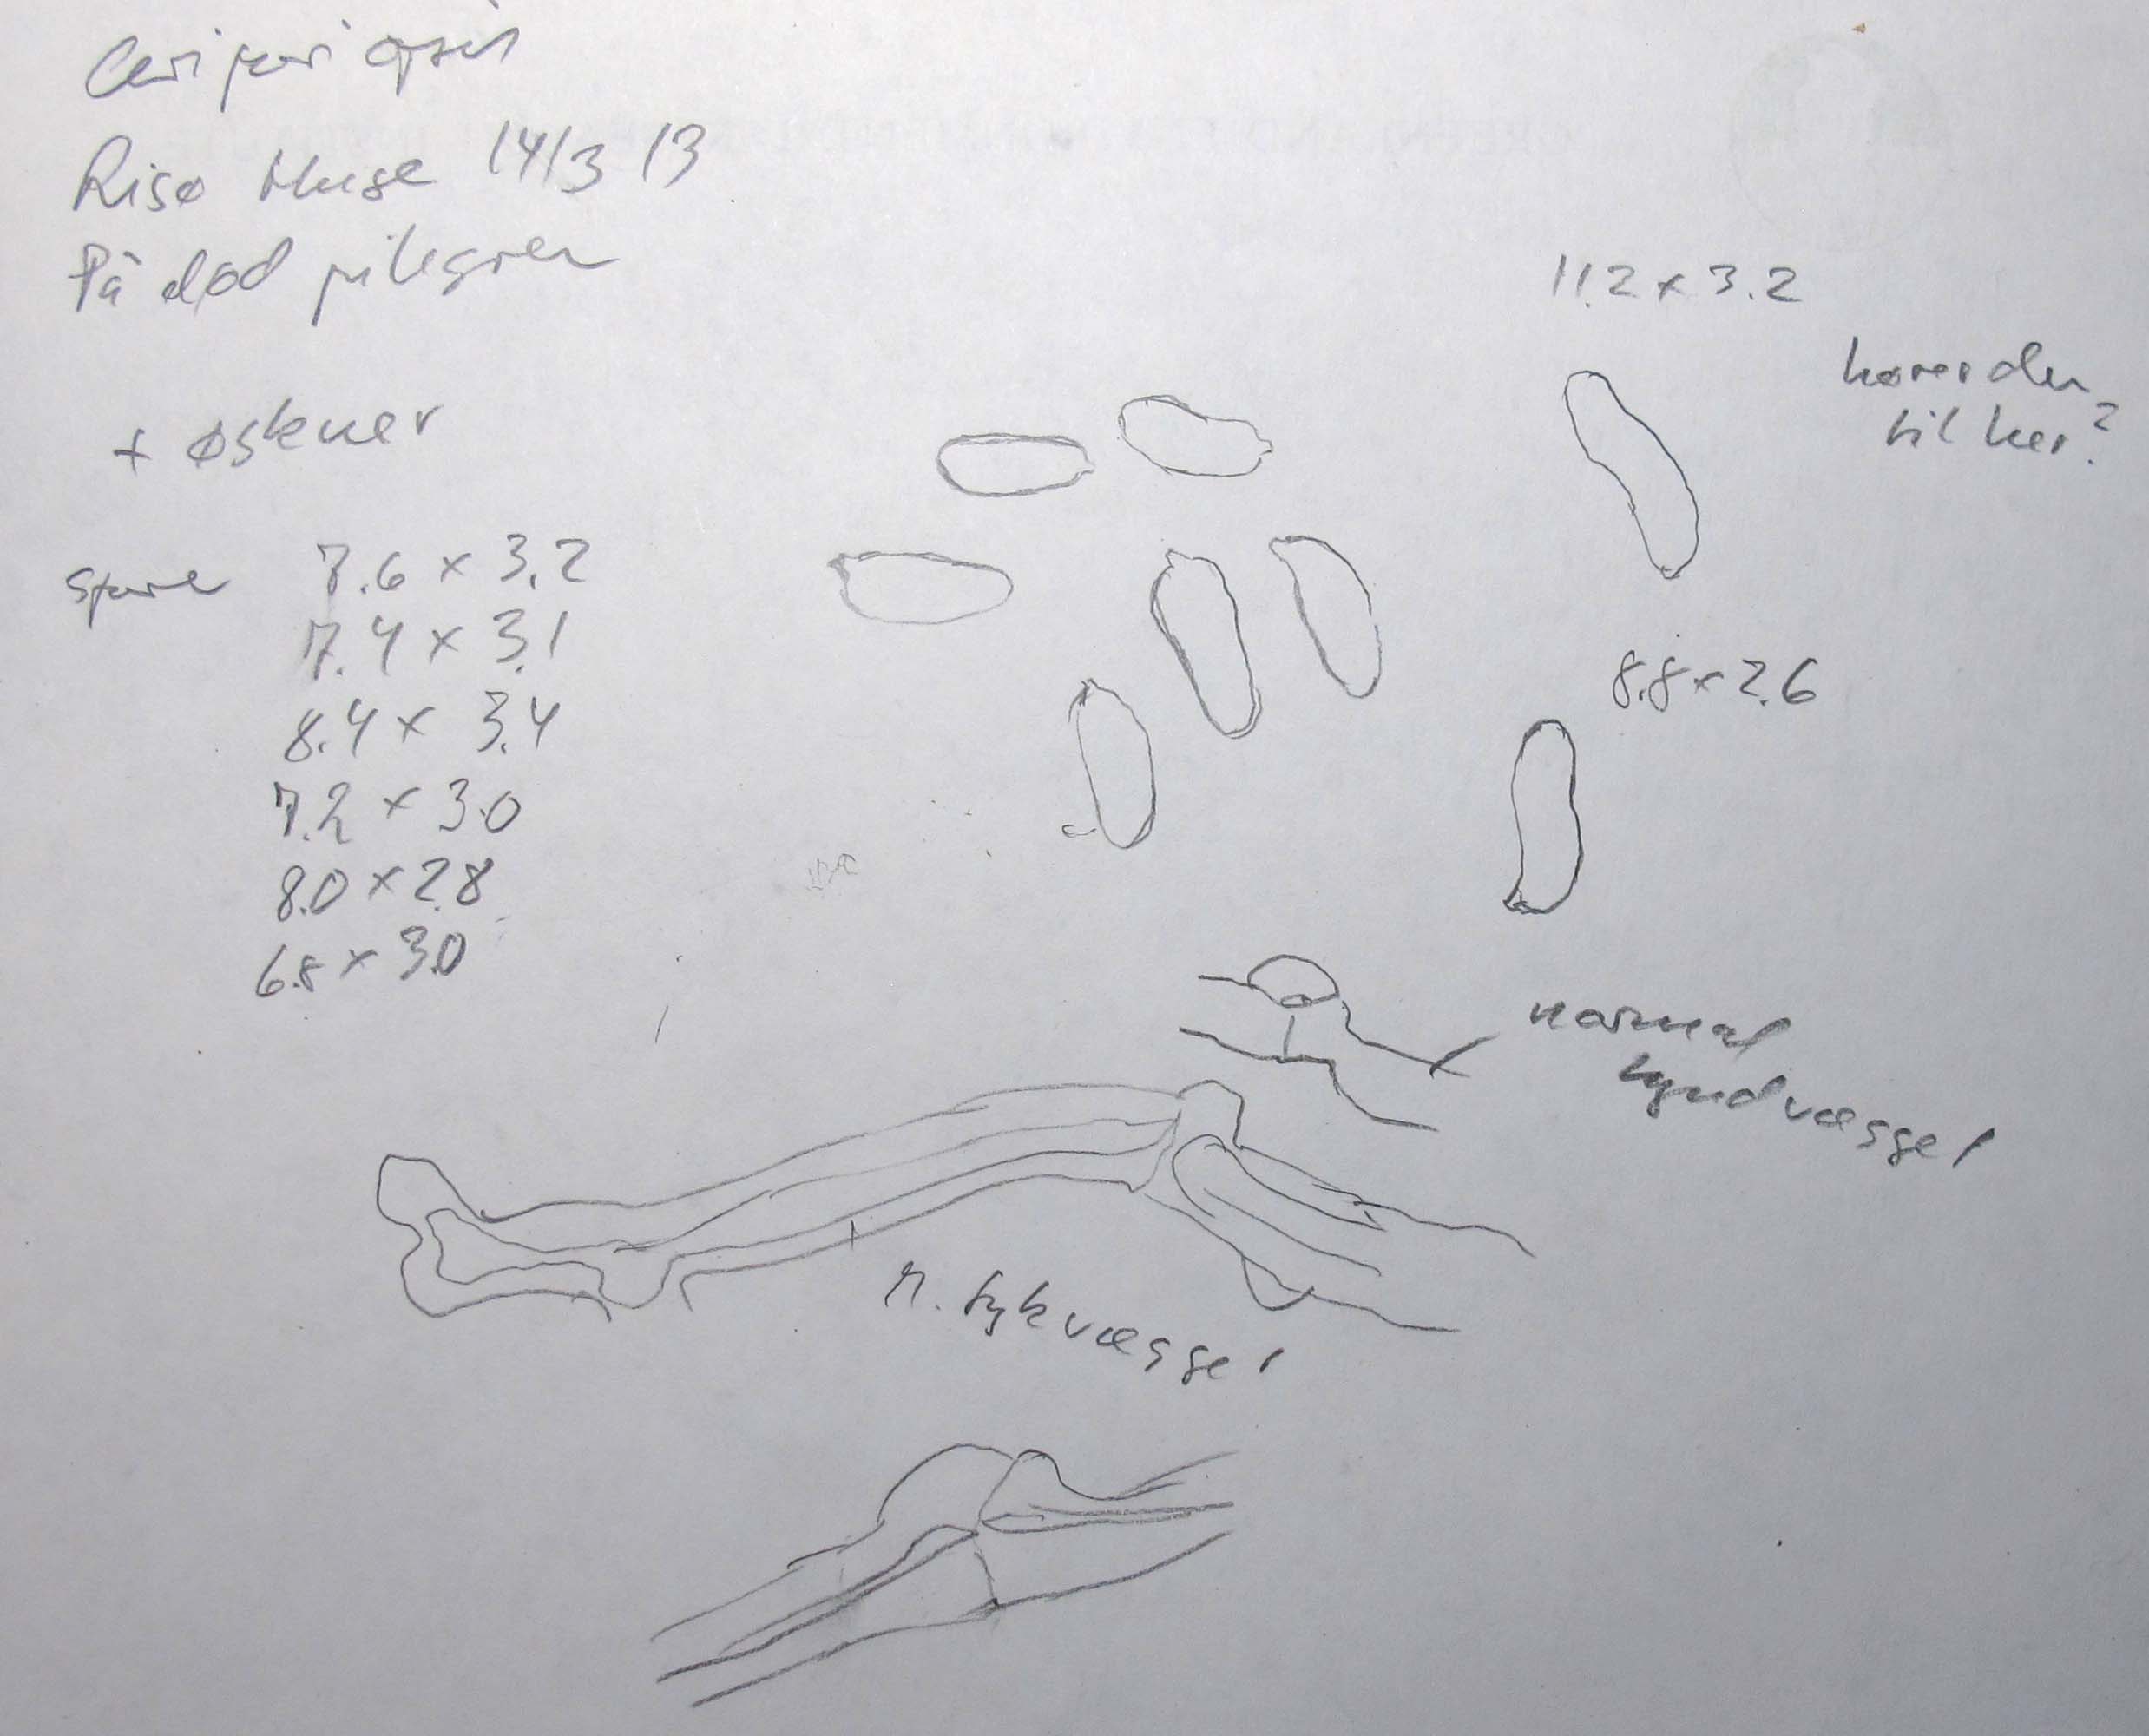 Ceriporiopsis
Risø Huse 14/3 13
På død pilegren
+ øskner
Sporer 7.6 x 3.2
7.4 x 3.1
8.4 x 3.4
7.2 x 3.0
8.0 x 2.8
6.8 x 3.0
11.2 x 3.2
hører den
til her?
8.8 x 2.6
normal
tyndvægget
n. tykvægget